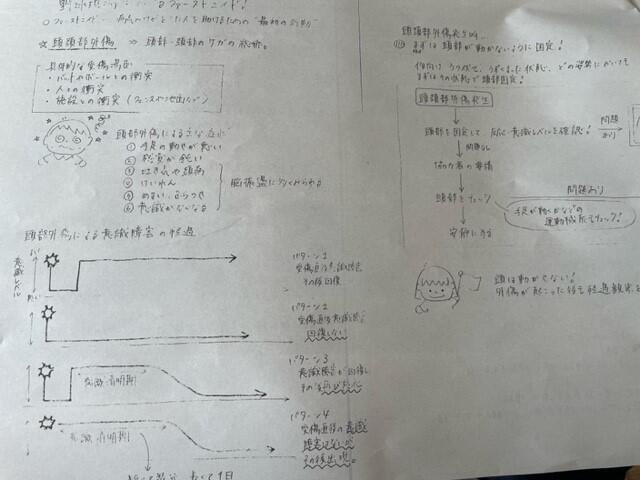 ファーストエイド!
☆頭頸部外傷 ⇒ 頭部・頸部のケガの総称。
具体的な受傷場面
・バットやボールとの衝突
・人との衝突
・施設との衝突
頭部外傷による主な症状
① 手足の動きが悪い
②
③ 吐き気や頭痛
④ けいれん
⑤ めまい、ふらつき
⑥ 意識がなくなる
脳振盪に多くみられる
頭部外傷による意識障害の経過
意識レベル
パターン1
受傷直後
その後回復
パターン2
受傷直後
回復しない
パターン3
意識障害が回復し
その後
意識清明期
パターン4
受傷直後の意識
障害はないが
その後出現。
意識清明期
1日
頭頸部外傷発生
まずは頭部が動かないように固定!
仰向け、うつ伏せ、うずくまった状態、どの姿勢においても
まずはその状態で頭部固定!
頭頸部外傷発生
頭部を固定して 反応・意識レベルを確認!
問題あり
問題なし
協力者の準備
頸部をチェック
問題あり
手足が動くかなどの
運動機能をチェック!
安静にする
頭は動かせない!
外傷が起こった後も経過観察を